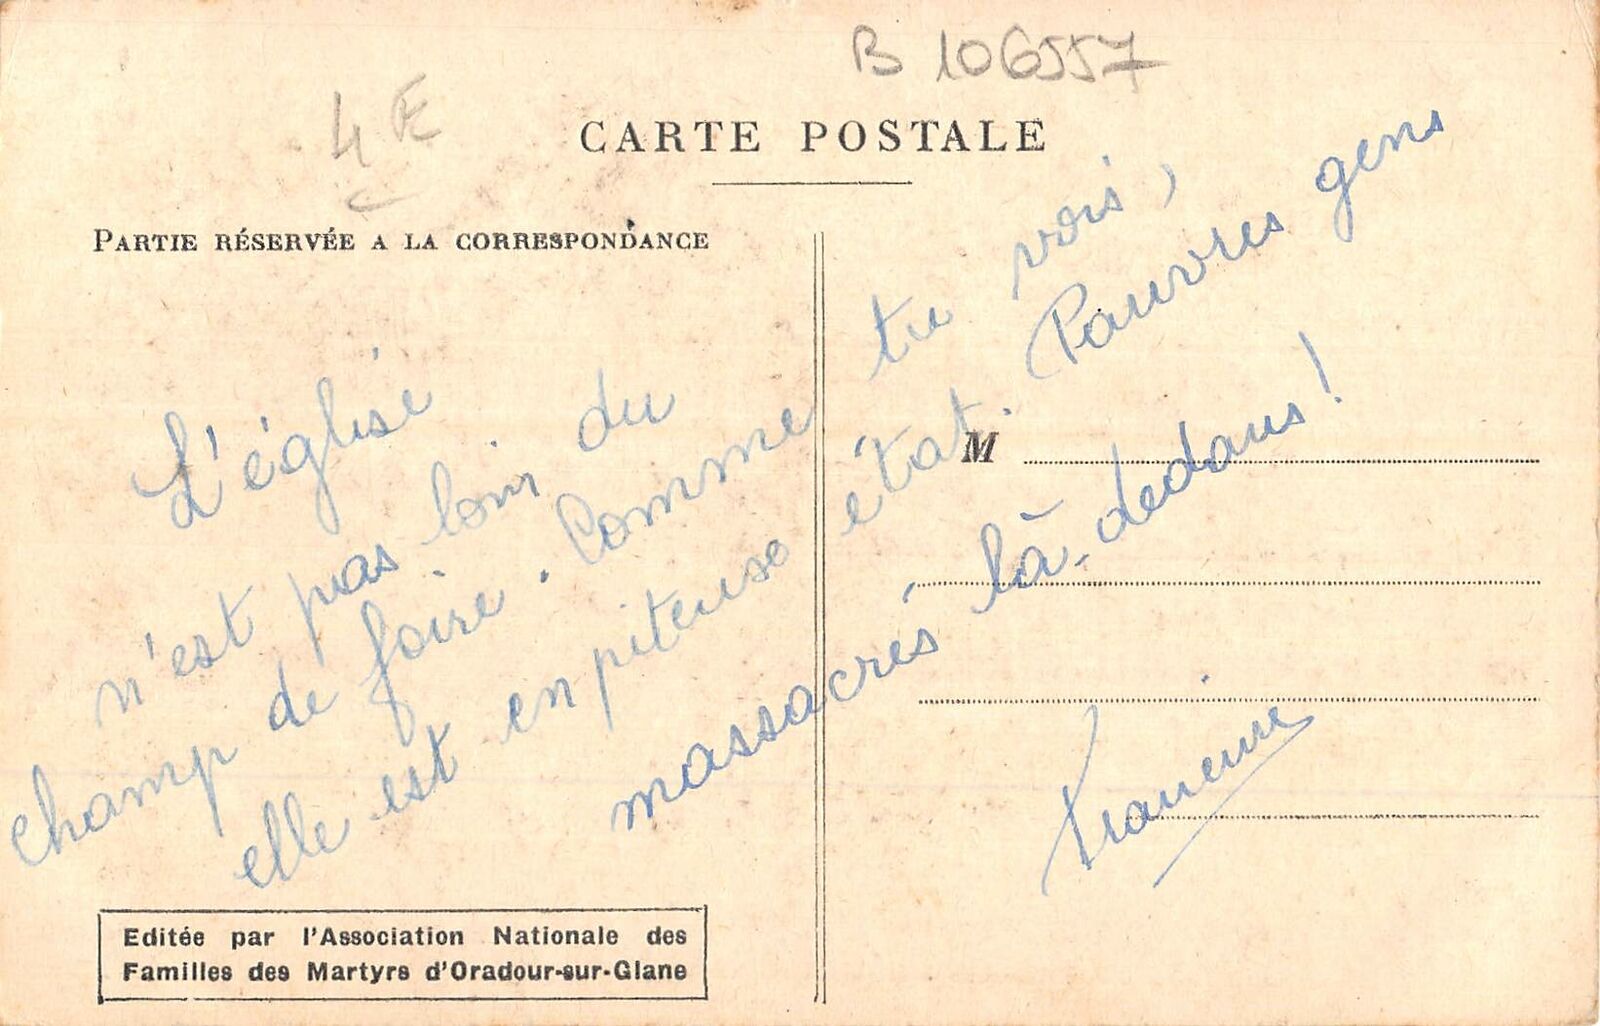 B 106557
4 E
CARTE POSTALE
PARTIE RÉSERVÉE A LA CORRESPONDANCE
L'église
n'est pas loin du
champ de foire. Comme tu vois,
elle est en piteuse état. Pauvres gens
massacrés là-dedans!
Francine
M
Editée par l'Association Nationale des
Familles des Martyrs d'Oradour-sur-Glane